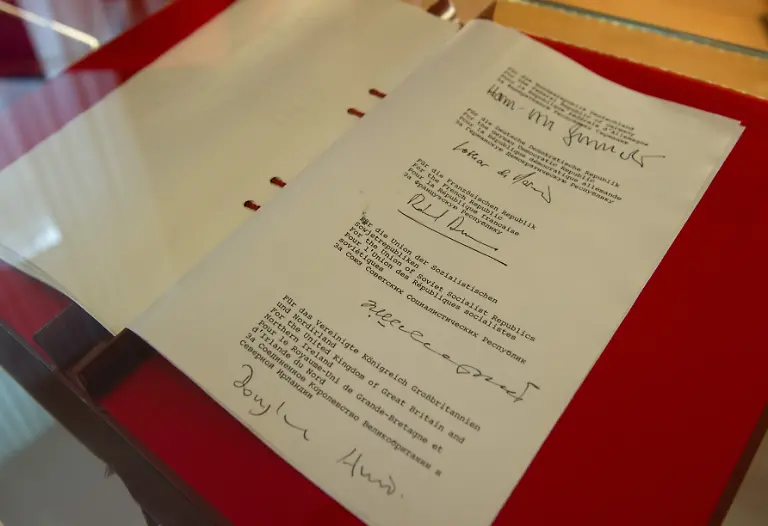 Für die Bundesrepublik Deutschland
For the Federal Republic of Germany
Pour la République fédérale d'Allemagne
За Федеративную Республику Германии
Hans-Dietrich Genscher
Für die Deutsche Demokratische Republik
For the German Democratic Republic
Pour la République démocratique allemande
За Германскую Демократическую Республику
Lothar de Maizière
Für die Französische Republik
For the French Republic
Pour la République française
За Французскую Республику
Für die Union der Sozialistischen
Sowjetrepubliken
For the Union of Soviet Socialist Republics
Pour l'Union des Républiques socialistes
soviétiques
За Союз Советских Социалистических Республик
Für das Vereinigte Königreich Großbritannien
und Nordirland
For the United Kingdom of Great Britain and
Northern Ireland
Pour le Royaume-Uni de Grande-Bretagne et
d'Irlande du Nord
За Соединенное Королевство Великобритании и
Северной Ирландии
Douglas Hurd.